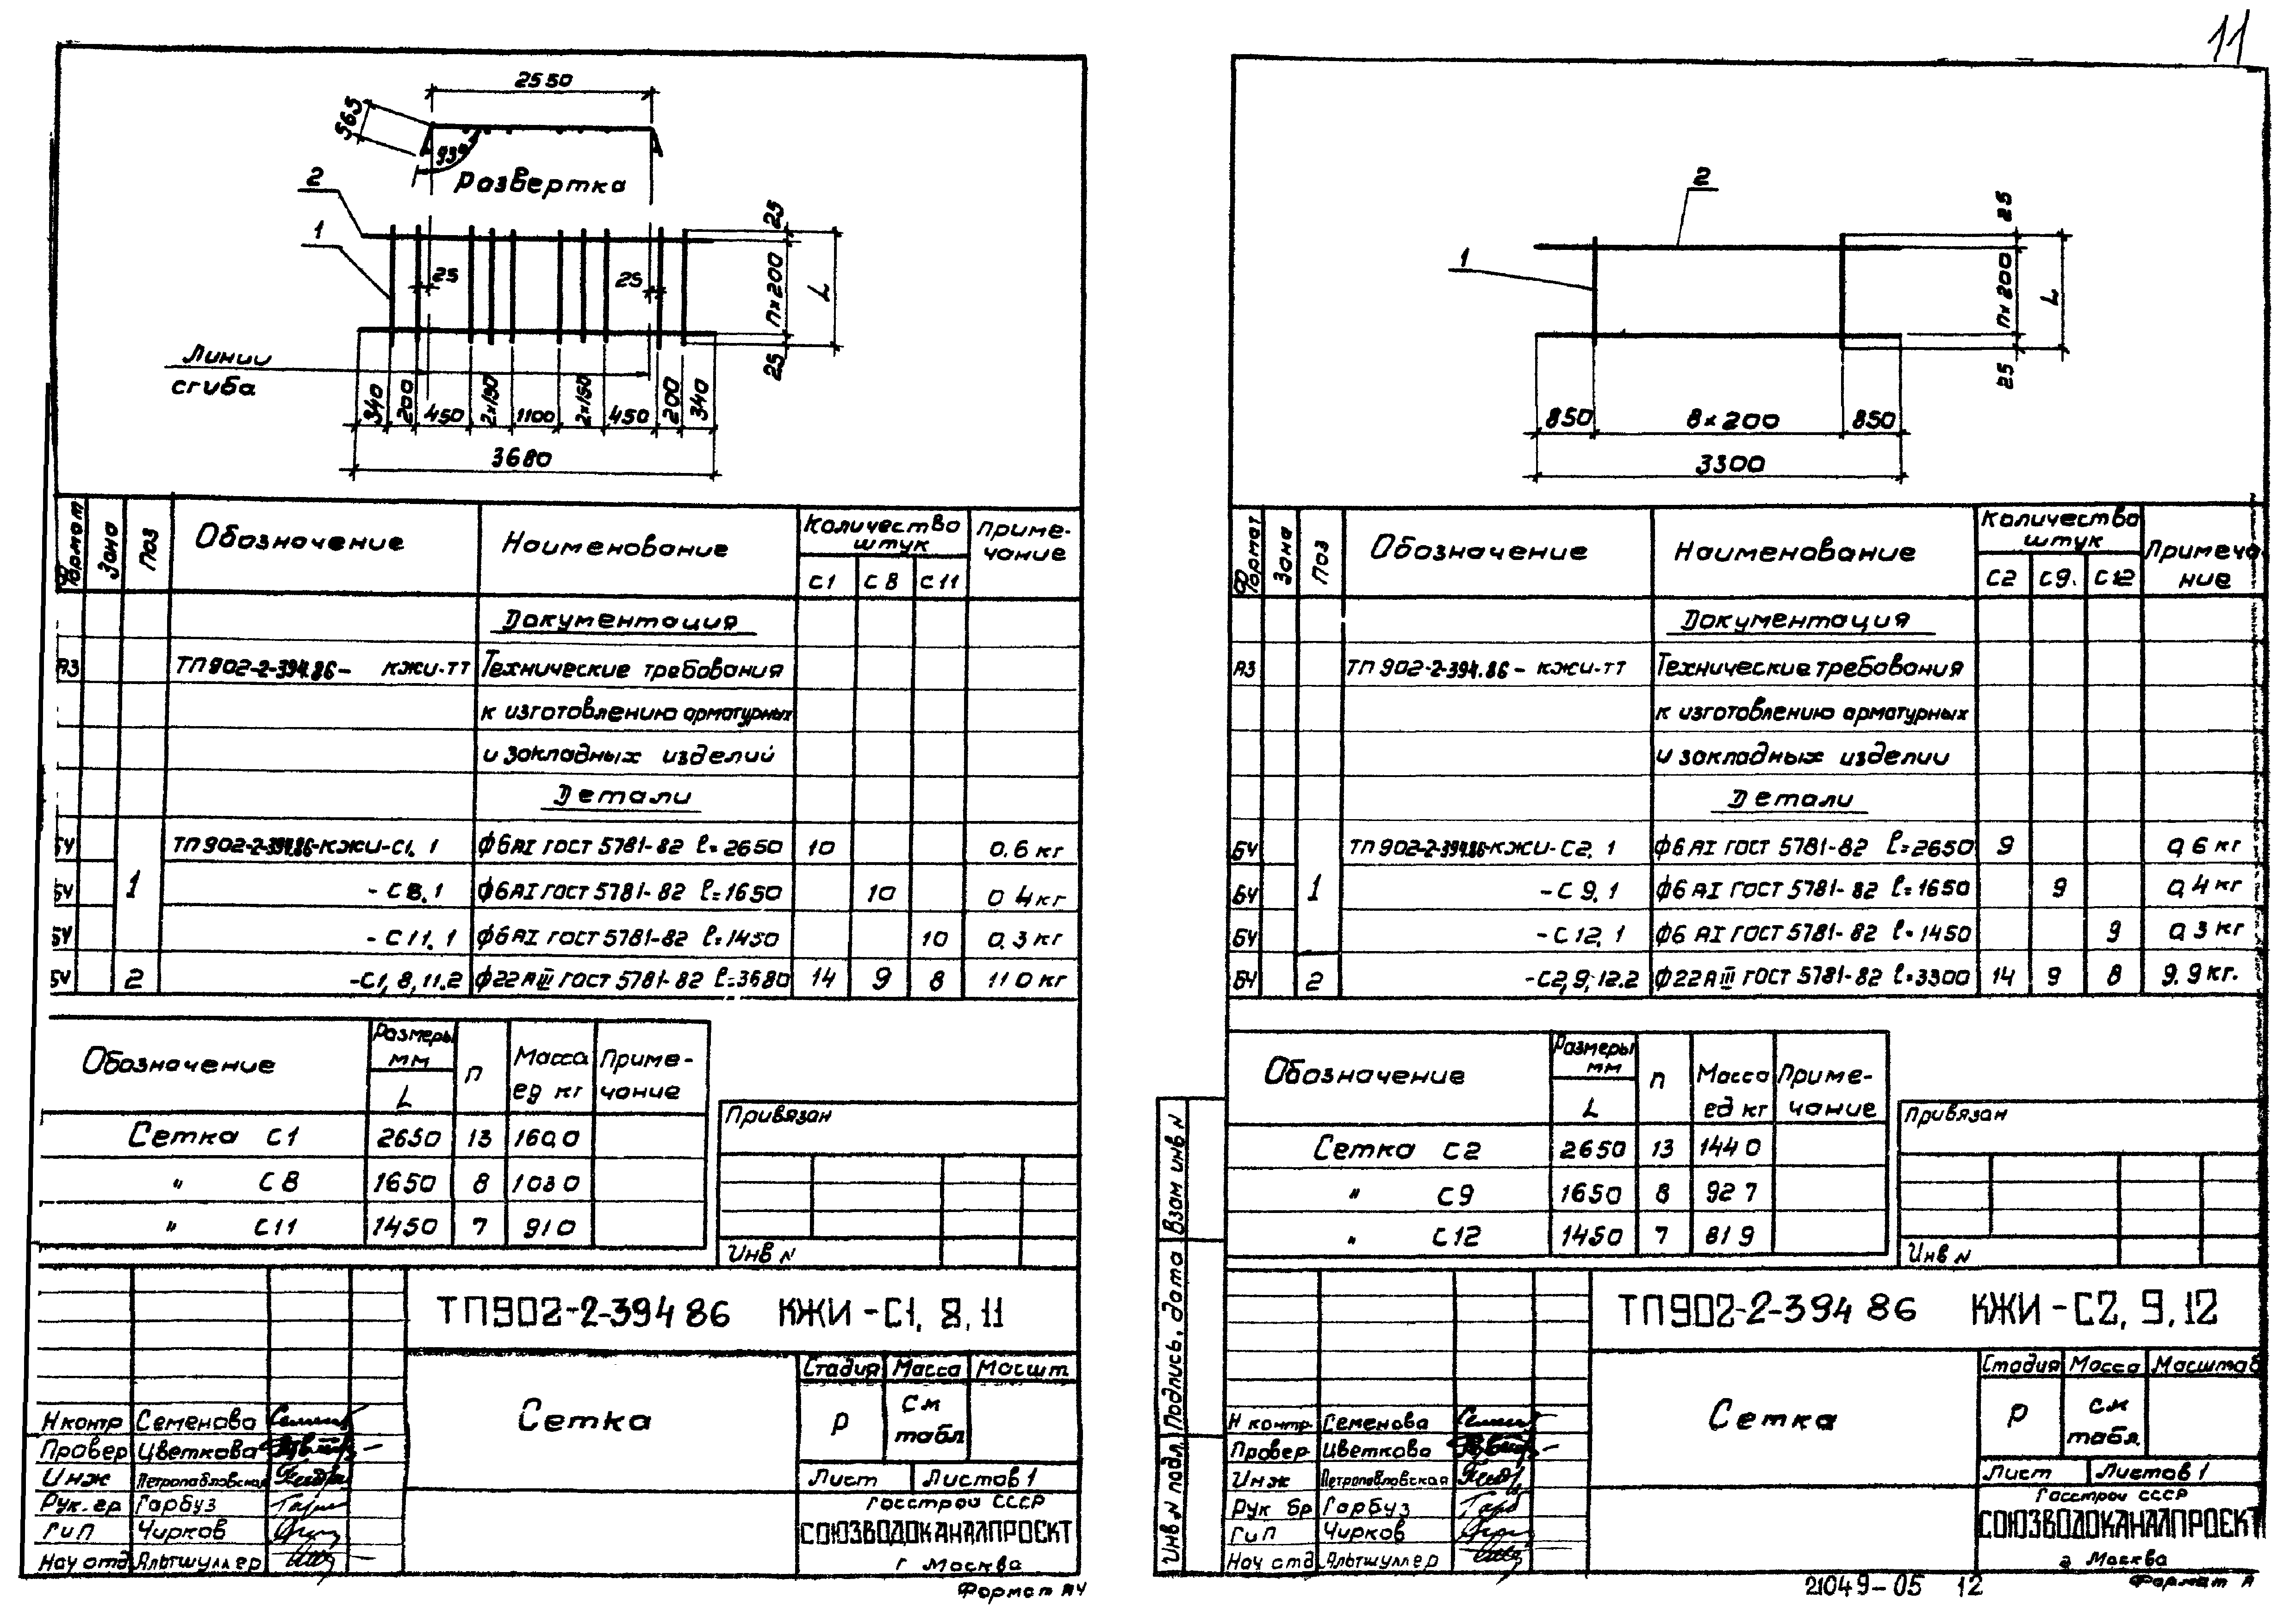 11
2550
565
93°
Развертка
2
1
25
25
25
n×200
25
L
Линии
сгиба
340
200
450
2×150
1100
2×150
450
200
340
3680
Формат
Зона
Поз
Обозначение
Наименование
Количество
штук
Приме-
чание
С1 С8 С11
Документация
А3 ТП902-2-394.86- КЖИ-ТТ Технические требования
к изготовлению арматурных
и закладных изделий
Детали
БЧ ТП902-2-394.86-КЖИ-С1.1 ф6АI ГОСТ 5781-82 ℓ=2650 10 0.6 кг
БЧ 1 -С8.1 ф6АI ГОСТ 5781-82 ℓ=1650 10 0 4 кг
БЧ -С11.1 ф6АI ГОСТ 5781-82 ℓ=1450 10 0.3 кг
БЧ 2 -С1, 8, 11.2 ф22АIII ГОСТ 5781-82 ℓ=3680 14 9 8 11 0 кг
Обозначение
Размеры
мм
L
n
Масса
ед кг
Приме-
чание
Сетка С1 2650 13 160,0
" С8 1650 8 103 0
" С11 1450 7 91 0
Привязан
Инв N
ТП902-2-394 86 КЖИ-С1, 8, 11
Сетка
Стадия Масса Масшт
Р
См
табл
Лист Листов 1
Госстрой СССР
СОЮЗВОДОКАНАЛПРОЕКТ
г Москва
Н контр Семенова
Провер Цветкова
Инж Петропавловская
Рук. гр Гарбуз
ГиП Чирков
Нач отд Альтшуллер
Формат А4
2
1
25
n×200
25
L
850
8×200
850
3300
Формат
Зона
Поз
Обозначение
Наименование
Количество
штук
Примеча
ние
С2 С9. С12
Документация
А3 ТП902-2-394.86- КЖИ-ТТ Технические требования
к изготовлению арматурных
и закладных изделии
Детали
БЧ ТП902-2-394.86-КЖИ-С2.1 ф6АI ГОСТ 5781-82 ℓ=2650 9 0,6 кг
БЧ 1 -С9.1 ф6АI ГОСТ 5781-82 ℓ=1650 9 0,4 кг
БЧ -С12.1 ф6 АI ГОСТ 5781-82 ℓ=1450 9 0,3 кг
БЧ 2 -С2,9,12.2 ф22АIII ГОСТ 5781-82 ℓ=3300 14 9 8 9.9 кг.
Обозначение
Размеры
мм
L
n
Масса
ед кг
Приме-
чание
Сетка С2 2650 13 144 0
" С9 1650 8 92 7
" С12 1450 7 81 9
Привязан
Инв N
Взам инв N
Подпись, дата
Инв N подл
ТП902-2-394 86 КЖИ-С2, 9, 12
Сетка
Стадия Масса Масштаб
Р
См
табл.
Лист Листов 1
Госстрой СССР
СОЮЗВОДОКАНАЛПРОЕКТ
г Москва
Н контр. Семенова
Провер Цветкова
Инж Петропавловская
Рук бр Гарбуз
ГиП Чирков
Нач отд Альтшуллер
21049-05 12
Формат А